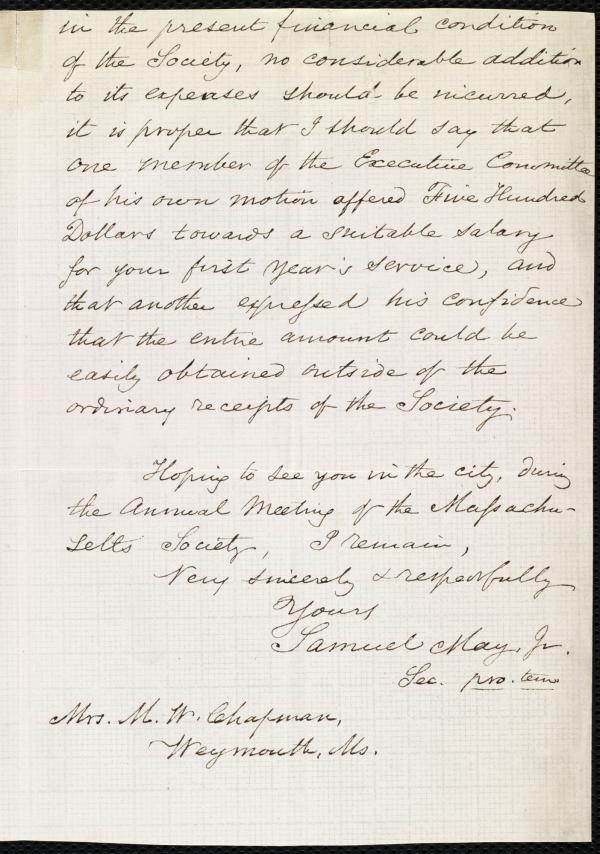 in the present financial condition
of the Society, no considerable addition
to its expenses should be incurred,
it is proper that I should say that
one member of the Executive Committee
of his own motion offered Five Hundred
Dollars towards a suitable salary
for your first year's service, and
that another expressed his confidence
that the entire amount could be
easily obtained outside of the
ordinary receipts of the Society.
Hoping to see you in the city, during
the Annual Meeting of the Massachu-
setts Society, I remain,
Very sincerely & respectfully
Yours
Samuel May, Jr.
Sec. pro. tem
Mrs. M. W. Chapman,
Weymouth, Ms.